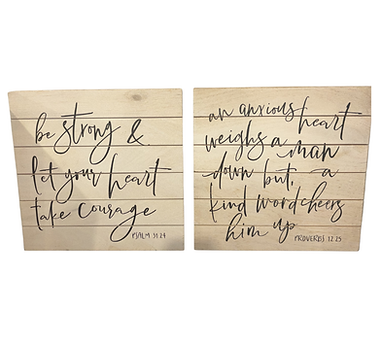 be strong &
let your heart
take courage
PSALM 31:24
an anxious heart
weighs a man
down but, a
kind word cheers
him up
PROVERBS 12:25